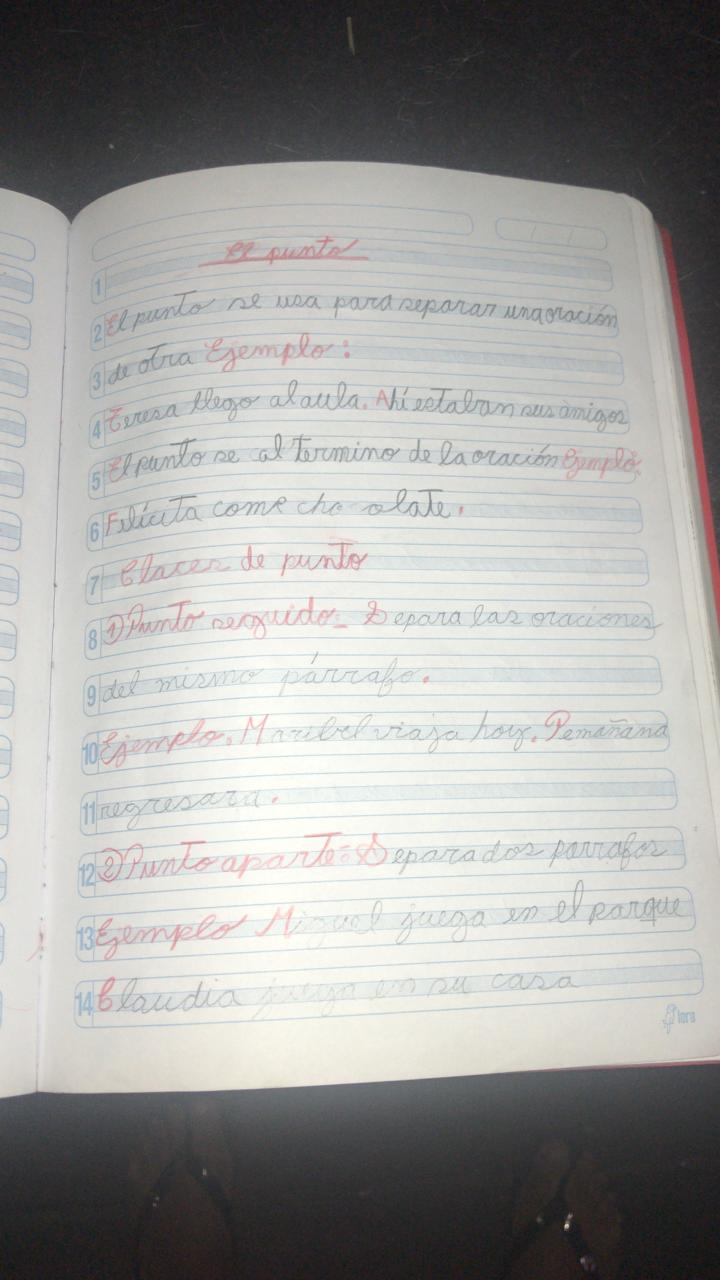 El punto
1
2 El punto se usa para separar una oración
3 de otra Ejemplo:
4 Teresa llego al aula. Ahí estaban sus amigos
5 El punto se al termino de la oración Ejemplo.
6 Felícita come cho olate.
7 Claces de punto
8 1) Punto seguido_ Separa las oraciones
9 del mismo párrafo.
10 Ejemplo. Maribel viaja hoy. Pemañana
11 regresara.
12 2) Punto aparte: Separa dos parrafos
13 Ejemplo Miguel juega en el parque
14 Claudia juega en su casa
lora